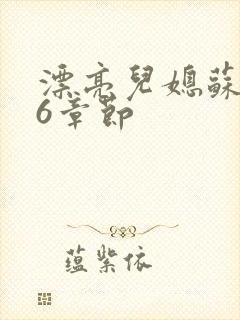 漂亮兒媳蘇
6章節
蕴紫依